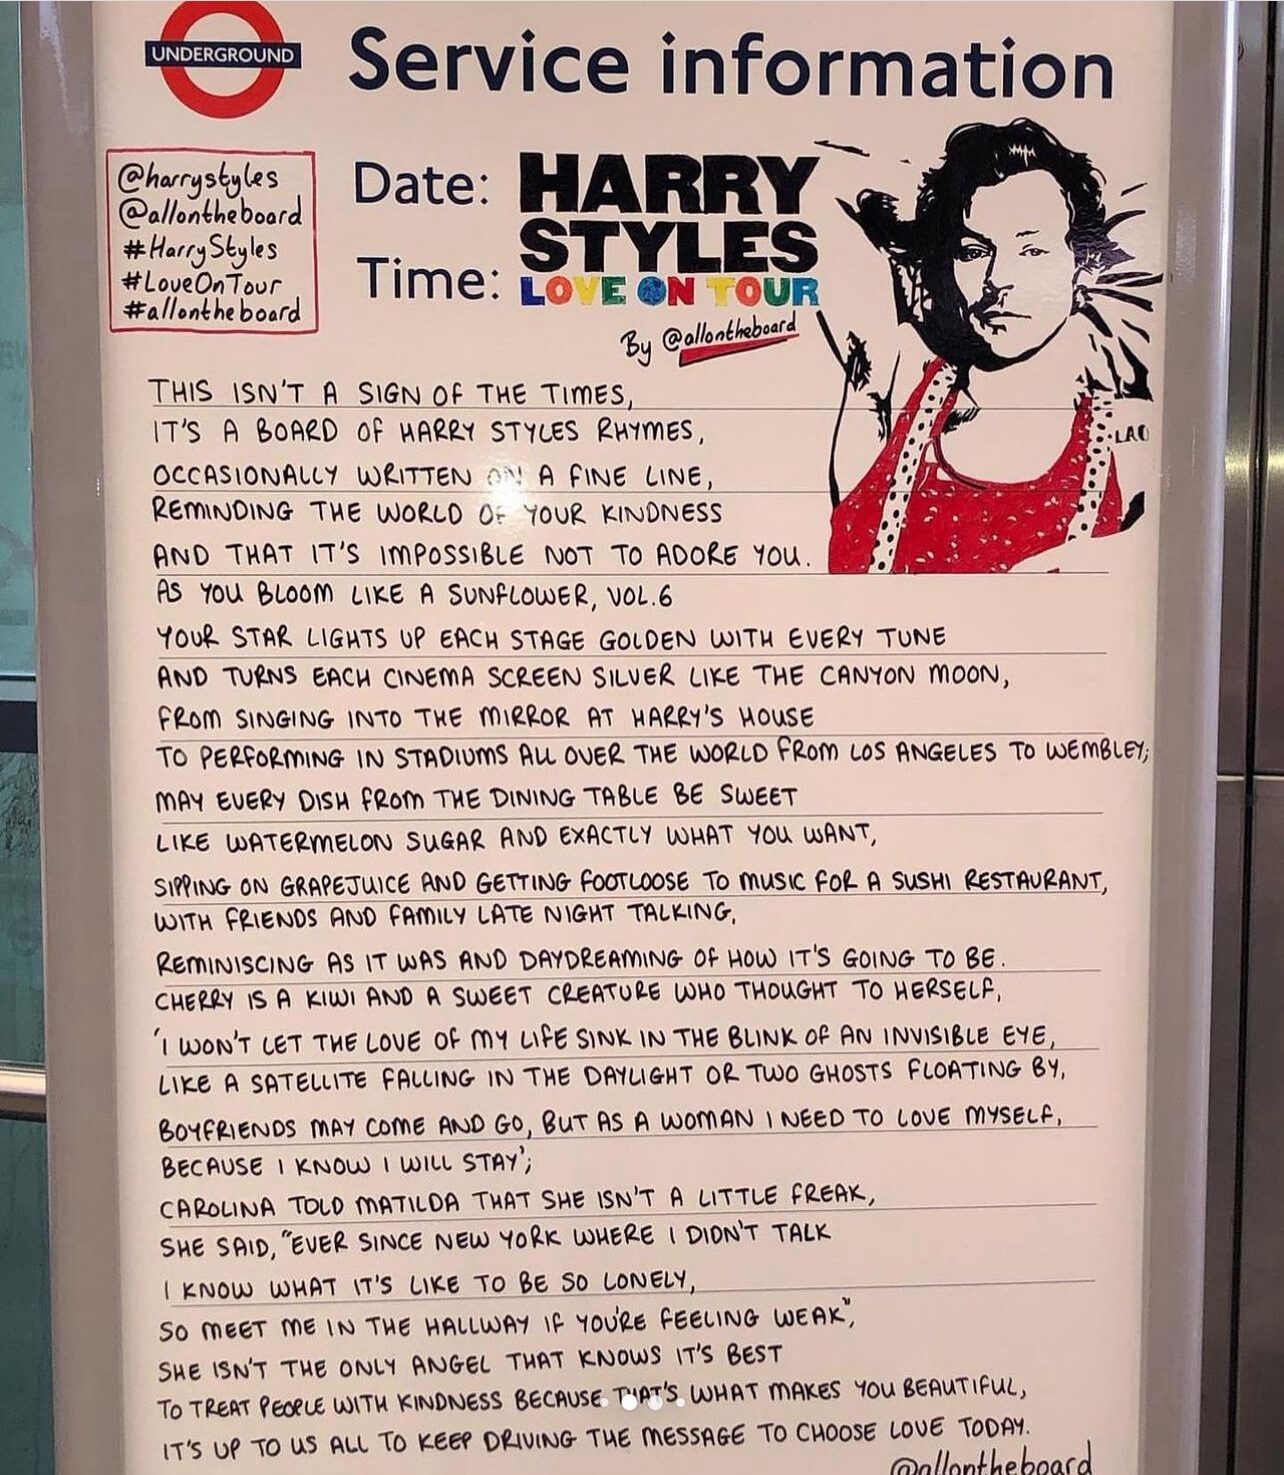 UNDERGROUND
Service information
@harrystyles
@allontheboard
#HarryStyles
#LoveOnTour
#allontheboard
Date:
Time:
HARRY
STYLES
LOVE ON TOUR
By @allontheboard
THIS ISN'T A SIGN OF THE TIMES,
IT'S A BOARD OF HARRY STYLES RHYMES,
OCCASIONALLY WRITTEN ON A FINE LINE,
REMINDING THE WORLD OF YOUR KINDNESS
AND THAT IT'S IMPOSSIBLE NOT TO ADORE YOU.
AS YOU BLOOM LIKE A SUNFLOWER, VOL.6
YOUR STAR LIGHTS UP EACH STAGE GOLDEN WITH EVERY TUNE
AND TURNS EACH CINEMA SCREEN SILVER LIKE THE CANYON MOON,
FROM SINGING INTO THE MIRROR AT HARRY'S HOUSE
TO PERFORMING IN STADIUMS ALL OVER THE WORLD FROM LOS ANGELES TO WEMBLEY;
MAY EVERY DISH FROM THE DINING TABLE BE SWEET
LIKE WATERMELON SUGAR AND EXACTLY WHAT YOU WANT,
SIPPING ON GRAPEJUICE AND GETTING FOOTLOOSE TO MUSIC FOR A SUSHI RESTAURANT,
WITH FRIENDS AND FAMILY LATE NIGHT TALKING,
REMINISCING AS IT WAS AND DAYDREAMING OF HOW IT'S GOING TO BE.
CHERRY IS A KIWI AND A SWEET CREATURE WHO THOUGHT TO HERSELF,
'I WON'T LET THE LOVE OF MY LIFE SINK IN THE BLINK OF AN INVISIBLE EYE,
LIKE A SATELLITE FALLING IN THE DAYLIGHT OR TWO GHOSTS FLOATING BY,
BOYFRIENDS MAY COME AND GO, BUT AS A WOMAN I NEED TO LOVE MYSELF,
BECAUSE I KNOW I WILL STAY';
CAROLINA TOLD MATILDA THAT SHE ISN'T A LITTLE FREAK,
SHE SAID, "EVER SINCE NEW YORK WHERE I DIDN'T TALK
I KNOW WHAT IT'S LIKE TO BE SO LONELY,
SO MEET ME IN THE HALLWAY IF YOU'RE FEELING WEAK",
SHE ISN'T THE ONLY ANGEL THAT KNOWS IT'S BEST
TO TREAT PEOPLE WITH KINDNESS BECAUSE THAT'S WHAT MAKES YOU BEAUTIFUL,
IT'S UP TO US ALL TO KEEP DRIVING THE MESSAGE TO CHOOSE LOVE TODAY.
@allontheboard